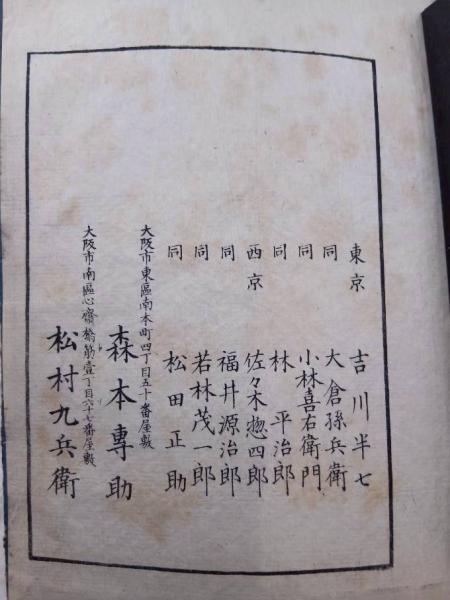 東京 吉川半七
同 大倉孫兵衛
同 小林喜右衛門
同 林平治郎
西京 佐々木惣四郎
同 福井源治郎
同 若林茂一郎
同 松田正助
大阪市東區南本町四丁目五十番屋敷
森本專助
大阪市南區心齋橋筋壹丁目六十七番屋敷
松村九兵衛